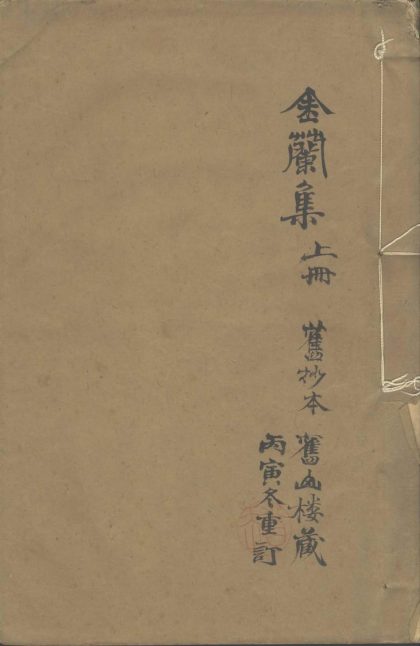 金蘭集 上冊 舊抄本 舊山楼藏
丙寅冬重訂